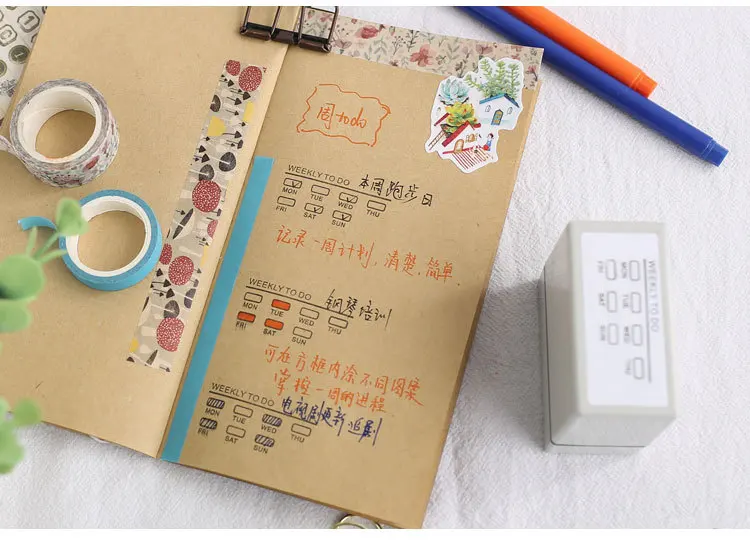 周to do
WEEKLY TO DO
本周跑步日
MON TUE WED THU
FRI SAT SUN
记录一周计划,清楚,简单.
WEEKLY TO DO
钢琴培训
MON TUE WED THU
FRI SAT SUN
可在方框内涂不同图案
掌控一周的进程.
WEEKLY TO DO
电视剧更新 追剧
MON TUE WED THU
FRI SAT SUN
WEEKLY TO DO
MON TUE WED THU
FRI SAT SUN